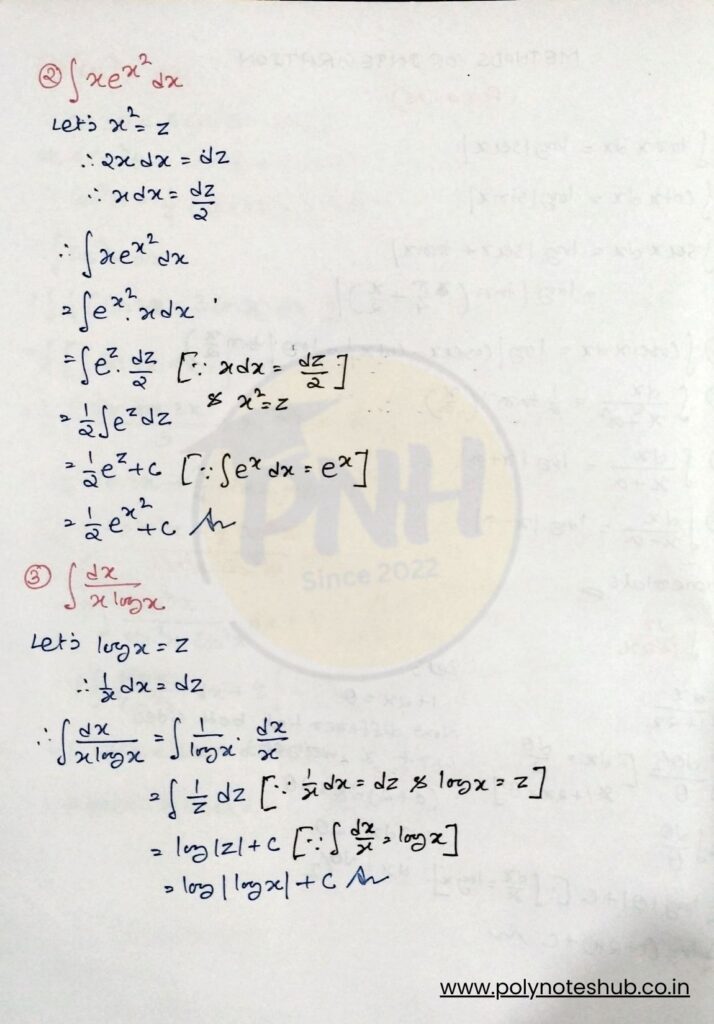 ② ∫ x e^{x²} dx
Let's x² = z
∴ 2x dx = dz
∴ x dx = dz/2
∴ ∫ x e^{x²} dx
= ∫ e^{x²}. x dx
= ∫ e^z. dz/2 [∵ x dx = dz/2 & x² = z]
= 1/2 ∫ e^z dz
= 1/2 e^z + c [∵ ∫ e^x dx = e^x]
= 1/2 e^{x²} + c An
③ ∫ dx/(x log x)
Let's log x = z
∴ 1/x dx = dz
∴ ∫ dx/(x log x) = ∫ 1/(log x) . dx/x
= ∫ 1/z dz [∵ 1/x dx = dz & log x = z]
= log |z| + c [∵ ∫ dx/x = log x]
= log |log x| + c An
PNH
Since 2022
www.polynoteshub.co.in